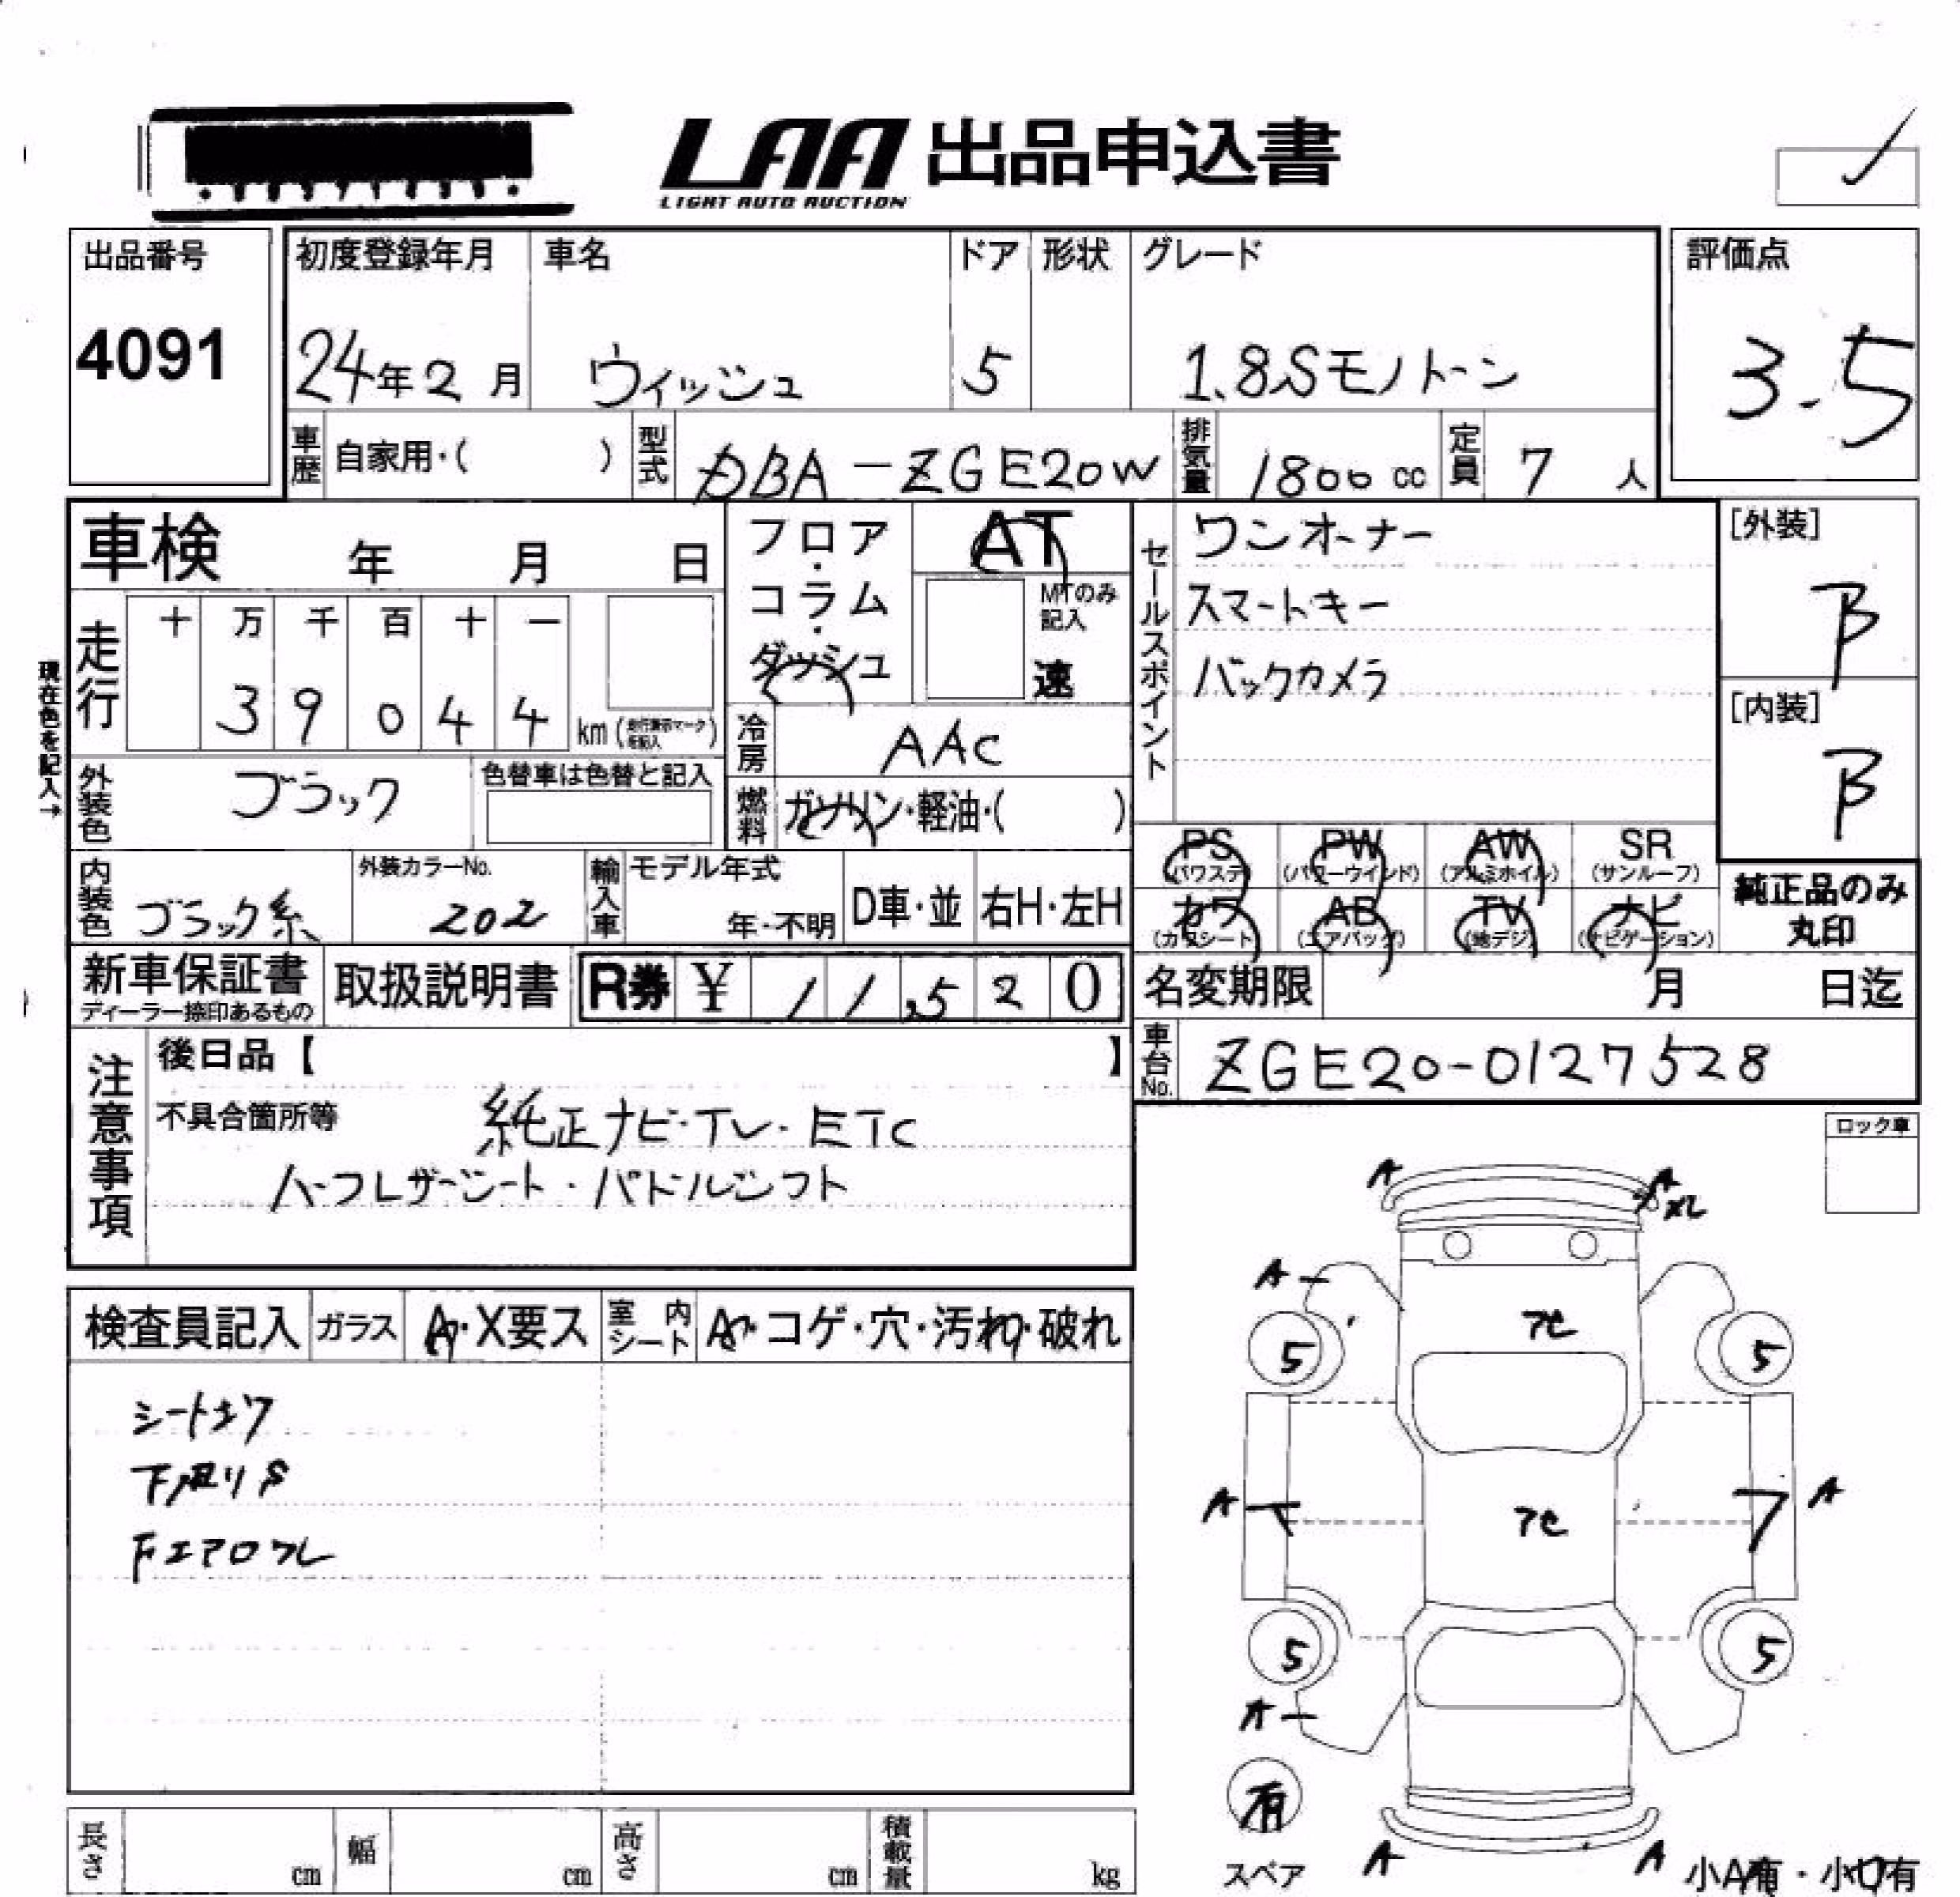 LAA 出品申込書
LIGHT AUTO AUCTION
出品番号
4091
初度登録年月 車名 ドア 形状 グレード
24年2月 ウィッシュ 5 1.8Sモノトーン
評価点
3.5
車歴 自家用・( ) 型式 DBA-ZGE20W 排気量 1800cc 定員 7人
車検 年 月 日
フロア・コラム・ダッシュ
AT
MTのみ記入
速
セールスポイント
ワンオーナー
スマートキー
バックカメラ
[外装]
B
[内装]
B
現在色を記入→
走行 十 万 千 百 十 一
39044 km (走行表示マークを記入)
冷房 AAC
外装色 ブラック 色替車は色替と記入
燃料 ガソリン・軽油・( )
PS (パワステ) PW (パワーウインド) AW (アルミホイル) SR (サンルーフ)
カワ (カワシート) AB (エアバッグ) TV (地デジ) ナビ (ナビゲーション)
純正品のみ丸印
内装色 ブラック系 外装カラーNo. 202 輸入車 モデル年式 年・不明 D車・並 右H・左H
新車保証書 ディーラー捺印あるもの 取扱説明書 R券 ¥ 11,520
名変期限 月 日迄
車台No. ZGE20-0127528
注意事項
後日品【 】
不具合箇所等 純正ナビ・TV・ETC
ハーフレザーシート・パドルシフト
ロック車
検査員記入 ガラス A・X要ス 室内シート A・コゲ・穴・汚れ・破れ
シートキワ
下廻りS
Fエアロワレ
A A
A
A
A A
A
A A
5 5
5 5
有
スペア
小A有・小凹有
長さ cm 幅 cm 高さ cm 積載量 kg